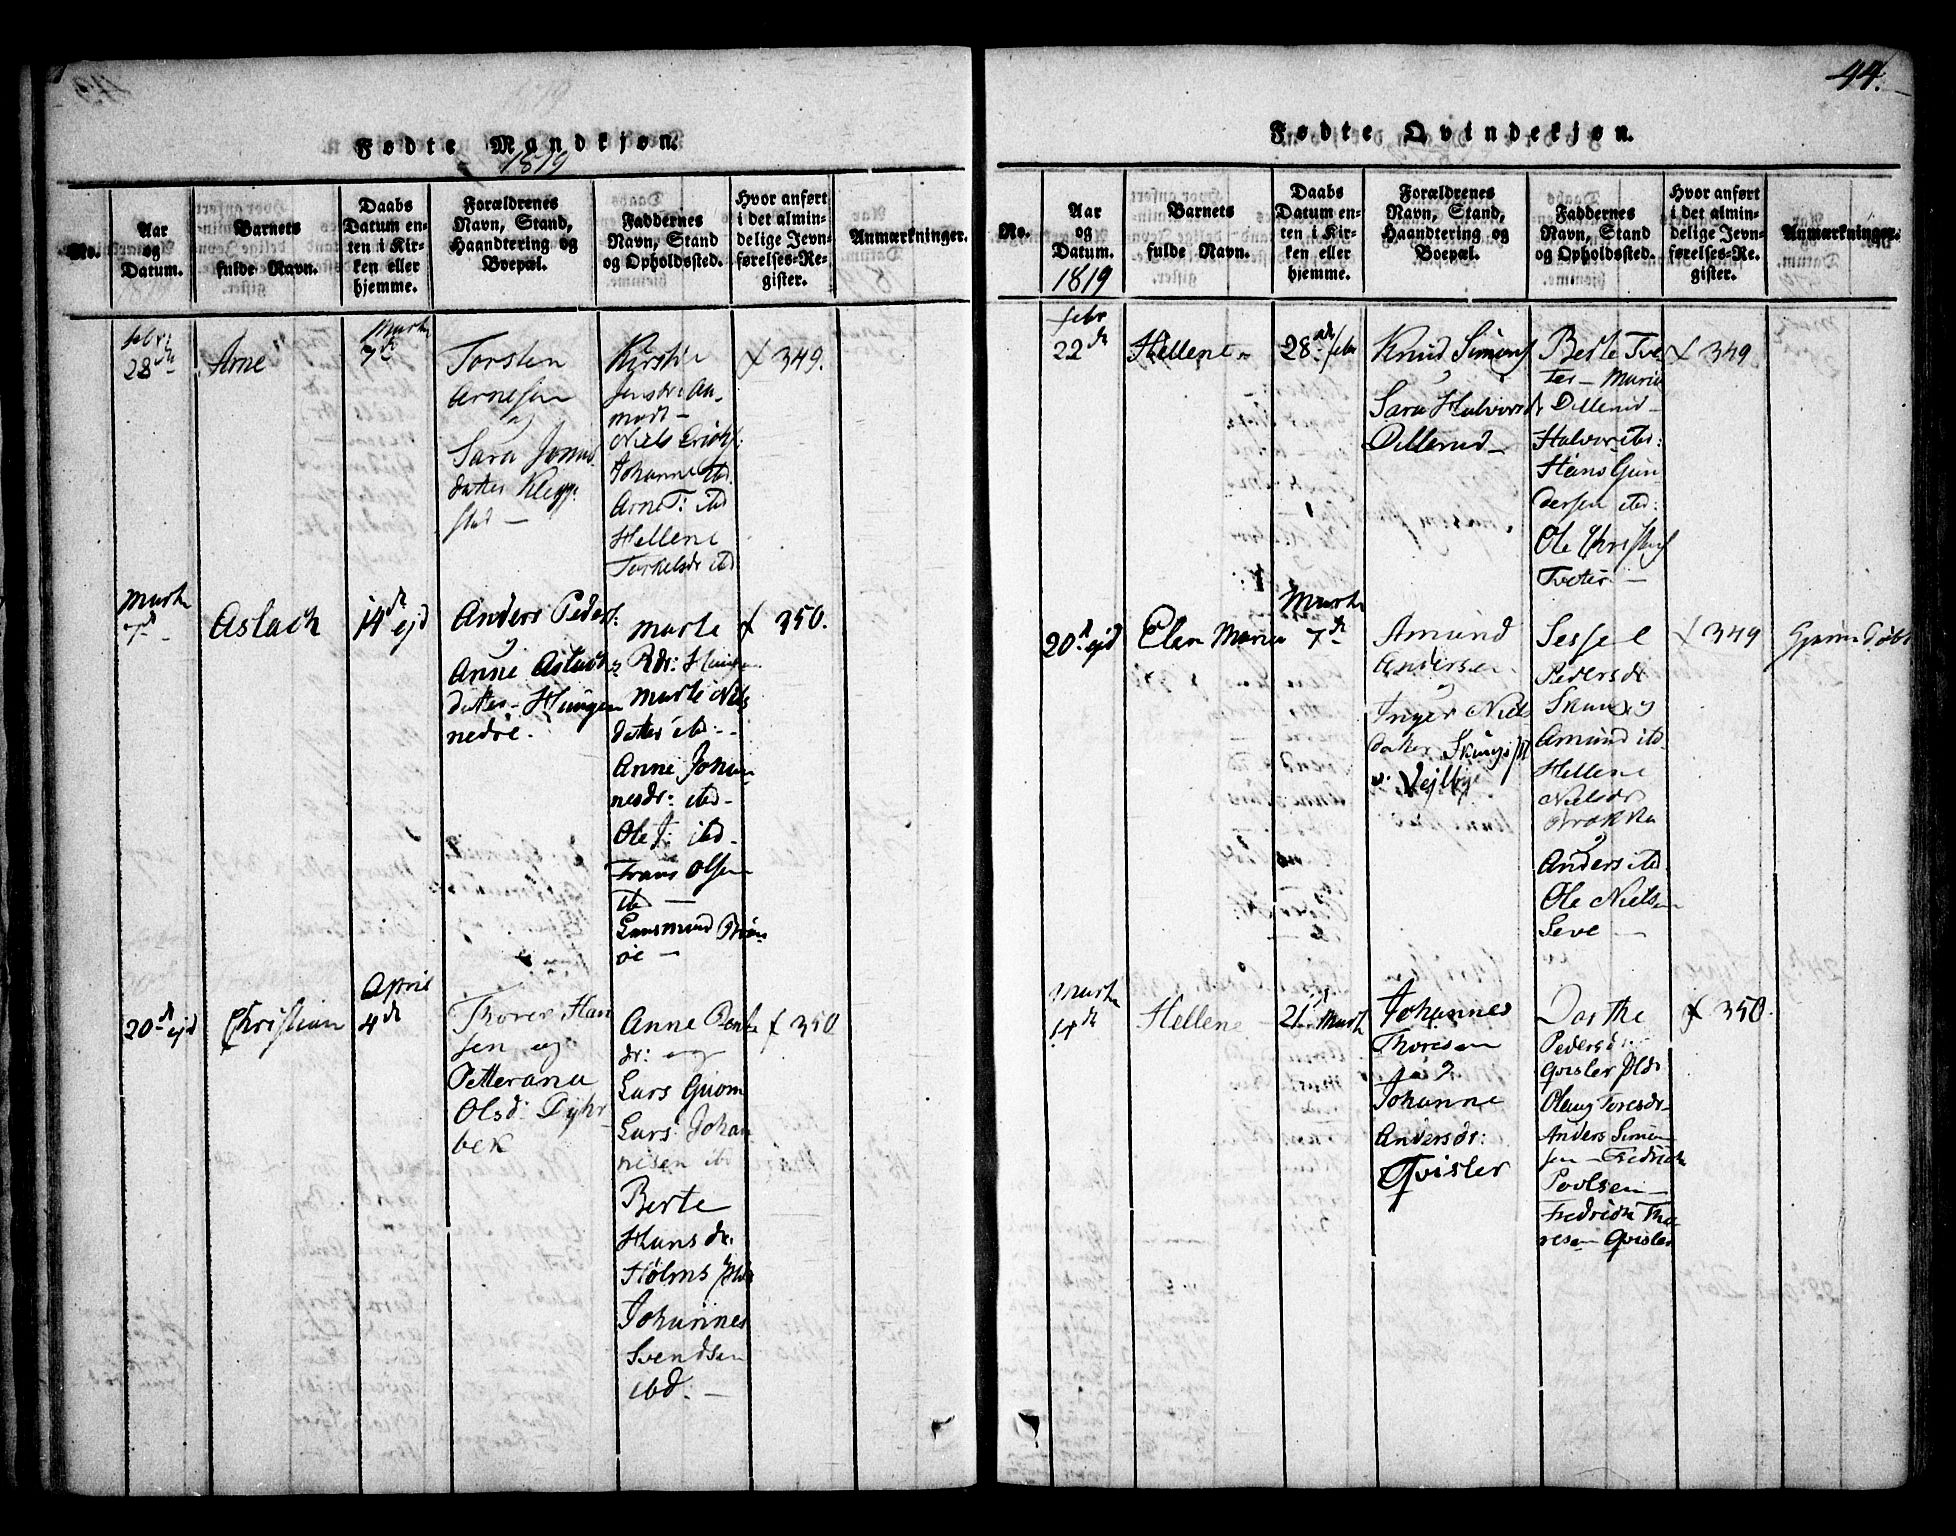 44.
Fødte Mandkjøn.
1819
No.
Aar og Datum.
Barnets fulde Navn.
Daabs Datum enten i Kirken eller hjemme.
Forældrenes Navn, Stand, Haandtering og Boepæl.
Faddernes Navn, Stand og Opholdssted.
Hvor anført i det almindelige Jevnførelses-Register.
Anmærkninger.
febr:
28de
Arne
Martz
7de
Torsten
Arnesen
og
Sara Jens
datter Klegg
stad —
Kirstie
Jensdr: Aa
modt —
Niels Erichs:
Johanne ibd
Arne T: ibd
Hellene
Torkelsdr ibd
349.
Martz
Aslach
14de ejd
Anders Peders:
og
Anne Aslachs
datter — Hungen
nedre.
Marte
Pdr:
Marte Niels
datter ibd: -
Anne Johan
nesdr: ibd —
Ole J: ibd —
Frans Olsen
ibd —
Gudmund
øe —
350.
20de ejd
Christian
April
4de
Thorer Han
sen og
Petterana
Olsd: Dyhr
bek
Anne
dr: og
Lars Guom
Lars Johan
nesen ibd
Berte
Hans dr:
Holms
Johannes
Svendsen
ibd. —
350
Fødte Qvindekjøn.
No.
Aar og Datum.
1819
Barnets fulde Navn.
Daabs Datum enten i Kirken eller hjemme.
Forældrenes Navn, Stand, Haandtering og Boepæl.
Faddernes Navn, Stand og Opholdssted.
Hvor anført i det almindelige Jevnførelses-Register.
Anmærkninger.
febr
22de
Hellene
28de febr
Knud Simens
og
Sara Halvorsdr
Dillerud —
Berte Tve
ter — Maria
Dillerud —
Halvor ibd:
Hans Gun
dersen ibd:
Ole Christens
Tveter —
349
20de ejd
Elen Maria
Martz
7de
Amund
Andersen
og
Inger Niels
datter
v: Vejlbye
Sessel
Pedersdr
og
Amund ibd
Hellene
Nielsdr
Brække
og
Anders ibd
Ole Nielsen
Seve —
349
Hjemmdøbt
Martz
14de
Hellene
21de Martz
Johannes
Thoresen
og
Johanne
Andersdr:
Qvisler
Dorthe
Pedersdr
Qvisler
Olaug Toresdr —
Anders Simen
sen — Fredrich
Povlsen —
Fredrich Tho
resen Qvisler
350.